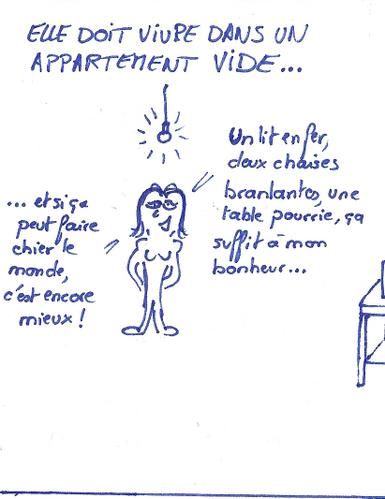 ELLE DOIT VIVRE DANS UN
APPARTEMENT VIDE...
Un lit en fer,
deux chaises
branlantes, une
table pourrie, ça
suffit à mon
bonheur...
... et si ça
peut faire
chier le
monde,
c'est encore
mieux !